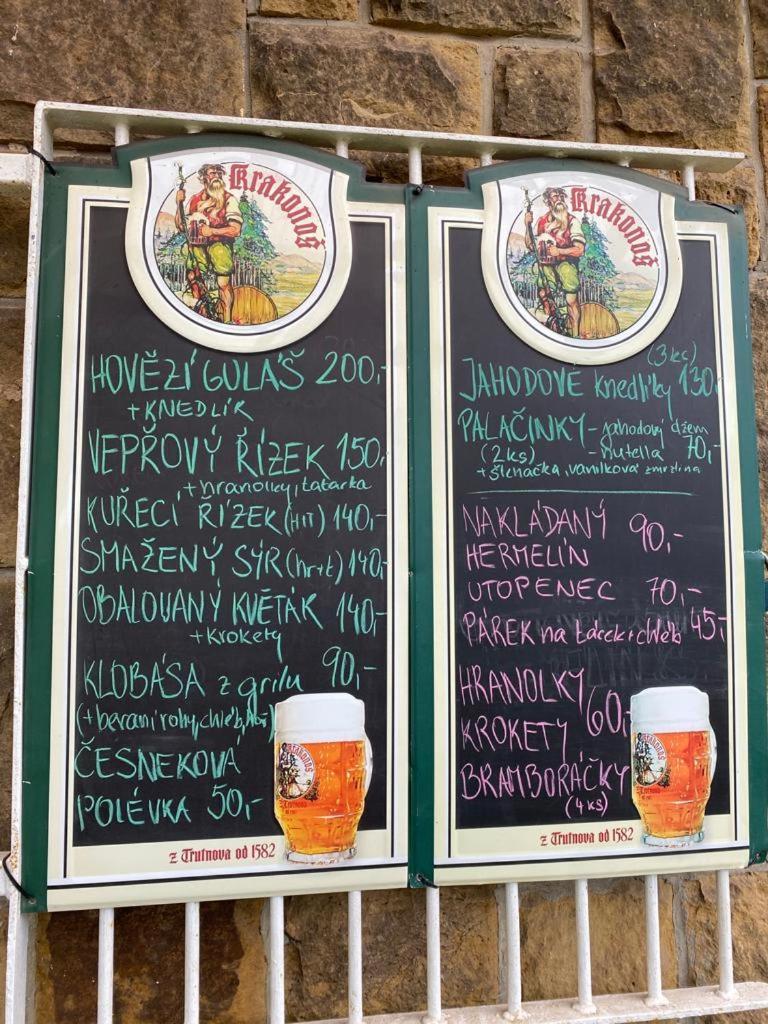 Krakonoš
HOVĚZÍ GULÁŠ 200,-
+ KNEDLÍK
VEPŘOVÝ ŘÍZEK 150,-
+ hranolky, tatarka
KUŘECÍ ŘÍZEK (H+T) 140,-
SMAŽENÝ SÝR (hr+t) 140,-
OBALOVANÝ KVĚTÁK 140,-
+ krokety
KLOBÁSA z grilu 90,-
(+ beraní rohy, chléb,
ČESNEKOVÁ
POLÉVKA 50,-
Krakonoš
z Trutnova od 1582
Krakonoš
(3 ks)
JAHODOVÉ knedlíky 130,-
PALAČINKY - jahodový džem
(2ks) - nutella 70,-
+ šlehačka, vanilková zmrzlina
NAKLÁDANÝ 90,-
HERMELÍN
UTOPENEC 70,-
PÁREK na tácek + chléb 45,-
HRANOLKY
KROKETY 60,-
BRAMBORÁČKY
(4 ks)
Krakonoš
z Trutnova od 1582